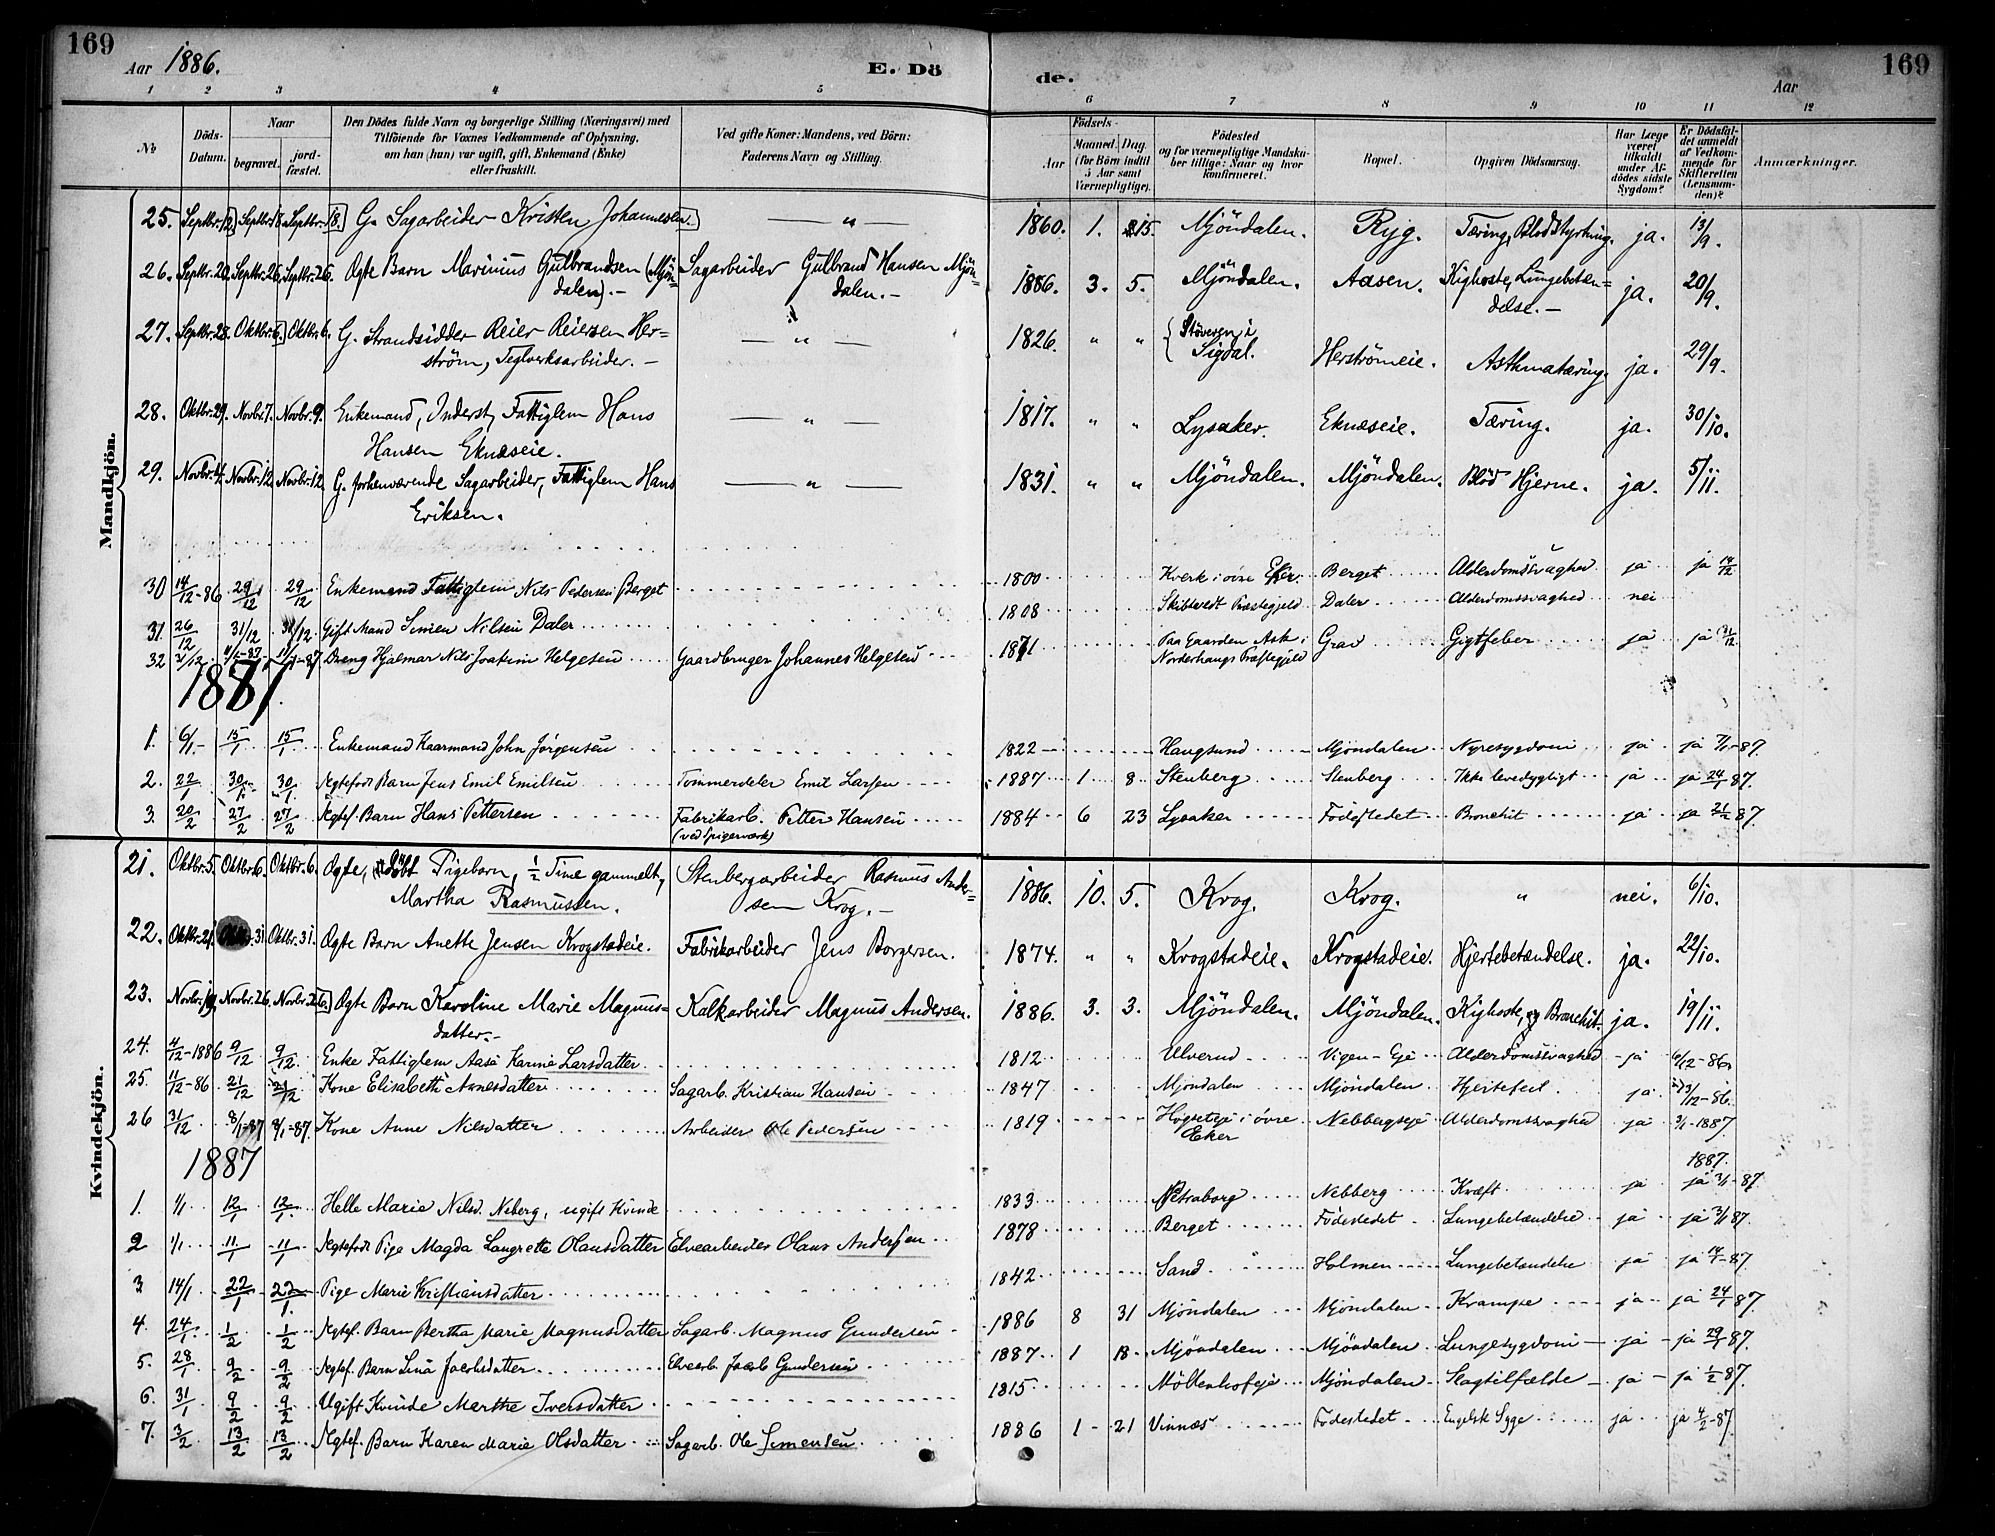 169
Aar 1886.
E. Dö
de.
Aar
169
1 2 3 4 5 6 7 8 9 10 11 12
No
Döds-Datum.
Naar
begravet.
jord-fæstet.
Den Dödes fulde Navn og borgerlige Stilling (Næringsvei) med
Tilföiende for Voxnes Vedkommende af Oplysning,
om han (hun) var ugift, gift, Enkemand (Enke)
eller fraskilt.
Ved gifte Koner: Mandens, ved Börn:
Faderens Navn og Stilling.
Födsels-
Aar
Maaned. Dag.
(for Börn indtil
5 Aar samt
Værnepligtige).
Födested
og for værnepligtige Mandsku-
ber tillige: Naar og hvor
konfirmeret.
Bopæl.
Opgiven Dödsaarsag.
Har Læge
været
tilkaldt
under Af-
dödes sidste
Sygdom?
Er Dödsfal-
det anmeldt
af Vedkom-
mende for
Skifteretten
(Lensman-
den)?
Anmærkninger.
Mandkjön.
25. Septbr. 12. Septbr. 18. Septbr. 18. G. Sagarbeider Kristen Johannesen. — „ — 1860. 1. 15. Mjöndalen. Ryg. Tæring, Blodstyrtning. ja. 13/9.
26. Septbr. 20. Septbr. 26. Septbr. 26. Ægte Barn Marinius Gulbrandsen (Mjön- Sagarbeider Gulbrand Hansen Mjön- 1886. 3. 5. Mjöndalen. Aasen. Kighoste, Lungebetæn=
dalen). — dalen. — delse. — ja. 20/9.
27. Septbr. 28. Oktbr. 6. Oktbr. 6. G. Strandsidder Reier Reiersen Her= — „ — 1826. „ „ Stöveren i
ström, Teglverksarbeider. — Sigdal. Herströmeie. Asthmatæring. ja. 29/9.
28. Oktbr. 29. Novbr. 7. Novbr. 9. Enkemand, Inderst, Fattiglem Hans — „ — 1817. „ „ Lysaker. Eknæseie. Tæring. ja. 30/10.
Hansen Eknæseie.
29. Novbr. 4. Novbr. 12. Novbr. 12. G. forhenværende Sagarbeider, Fattiglem Hans — „ — 1831. „ „ Mjöndalen. Mjöndalen. Blöd Hjerne. ja. 5/11.
Eriksen.
30 14/12-86 29/12 29/12 Enkemand Fattiglem Nils Pedersen Berget 1800 Hverk i övre Eker. Berget Alderdomssvaghed ja ja 14/12
31. 26/12 31/12 31/12. Gift Mand Simen Nilsen Daler 1808 Skibtvedt Præstegjeld Daler Alderdomssvaghed nei
32 31/12 11/1-87 11/1-87 Dreng Hjalmar Nils Joakim Helgesen Gaardbruger Johannes Helgesen 1871 Paa Gaarden Ask i Grav Gigtfeber ja ja 31/12
Norderhougs Præstegjeld
1887.
1. 6/1- 15/1 15/1 Enkemand Kaarmand John Jörgensen 1822 Haugsund Mjöndalen Nyresygdom ja ja 7/1-87
2. 22/1 30/1 30/1 Ægtefödt Barn Jens Emil Emilsen Tömmerdeler Emil Larsen 1887 1 8 Stenberg Stenberg Ikke levedygtigt ja ja 24/1 87.
3. 20/2 27/2 27/2 Ægtef. Barn Hans Pettersen Fabrikarb. Petter Hansen 1884 6 23 Lysaker Födestedet Bronchit ja ja 21/2 87.
(ved Spigerværk)
Kvindekjön.
21. Oktbr. 5. Oktbr. 6. Oktbr. 6. Ægte, udöbt Pigebarn, 1/2 Time gammelt, Stenbergarbeider Rasmus Ander= 1886. 10. 5. Krog. Krog. „ nei. 6/10.
Martha Rasmussen. sen Krog. —
22. Oktbr. 21. Oktbr. 31 Oktbr. 31. Ægte Barn Anette Jensen Krogstadeie. Fabrikarbeider Jens Borgersen. 1874. „ „ Krogstadeie. Krogstadeie. Hjertebetændelse. ja. 22/10.
23. Novbr. 19. Novbr. 26. Novbr. 26. Ægte Barn Karoline Marie Magnus= Kalkarbeider Magnus Andersen. 1886. 3. 3. Mjöndalen. Mjöndalen. Kighoste, og Bronchit. ja. 19/11.
datter. -
24. 4/12-1886 9/12 9/12. Enke Fattiglem Aase Karine Larsdatter 1812 Ulverud Vigen-Eje Alderdomssvaghed ja 6/12-86.
25. 11/12-86 21/12 21/12 Kone Elisabeth Arnesdatter Sagarb. Kristian Hansen 1847 Mjöndalen Mjöndalen Hjertefeil ja 13/12-86.
26 31/12 8/1-87 8/1-87. Kone Anne Nilsdatter Arbeider Ole Pedersen 1819 Högseteje i övre Nebbergseje Alderdomssvaghed ja 3/1-1887
Eker
1887
1887.
1. 1/1 12/1 12/1. Helle Marie Nilsd. Neberg, ugift Kvinde 1833 Nebberg Kræft ja ja 3/1-87
2 1/1 11/1 11/1 Ægtefödt Pige Magda Laugrette Olausdatter Elvearbeider Olaus Andersen 1878 Berget Födestedet Lungebetændelse ja ja 3/1 87.
3 14/1 22/1 22/1. Pige Marie Kristiansdatter 1842 Sand Holmen Lungebetændelse ja ja 14/1-87
4. 24/1 1/2 1/2 Ægtef. Barn Bertha Marie Magnusdatter Sagarb. Magnus Gundersen 1886 8 31 Mjöndalen Mjöndalen Krampe ja ja 24/1 87
5. 28/1 9/2 9/2 Ægtef. Barn Lina Jacobsdatter Elvearb. Jacob Gundersen 1887 1 18 Mjöndalen Mjöndalen Lungesygdom ja ja 29/1 87.
6. 31/1 9/2 9/2 Ugift Kvinde Marthe Iversdatter 1815 Möllenhofeje Mjöndalen Slagtilfælde ja ja 1/2 87.
7. 3/2 13/2 13/2 Ægtef. Barn Karen Marie Olsdatter Sagarb. Ole Simensen 1886 1 21 Vinnæs Födestedet Engelsk Syge ja ja 4/2-87.